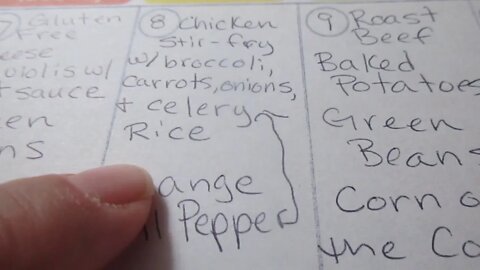 7 Gluten
Free
sauce
8 Chicken
Stir-fry
w/ broccoli,
carrots, onions,
+ celery
Rice
ange
Pepper
9 Roast
Beef
Baked
Potatoes
Green
Beans
Corn o
the Co